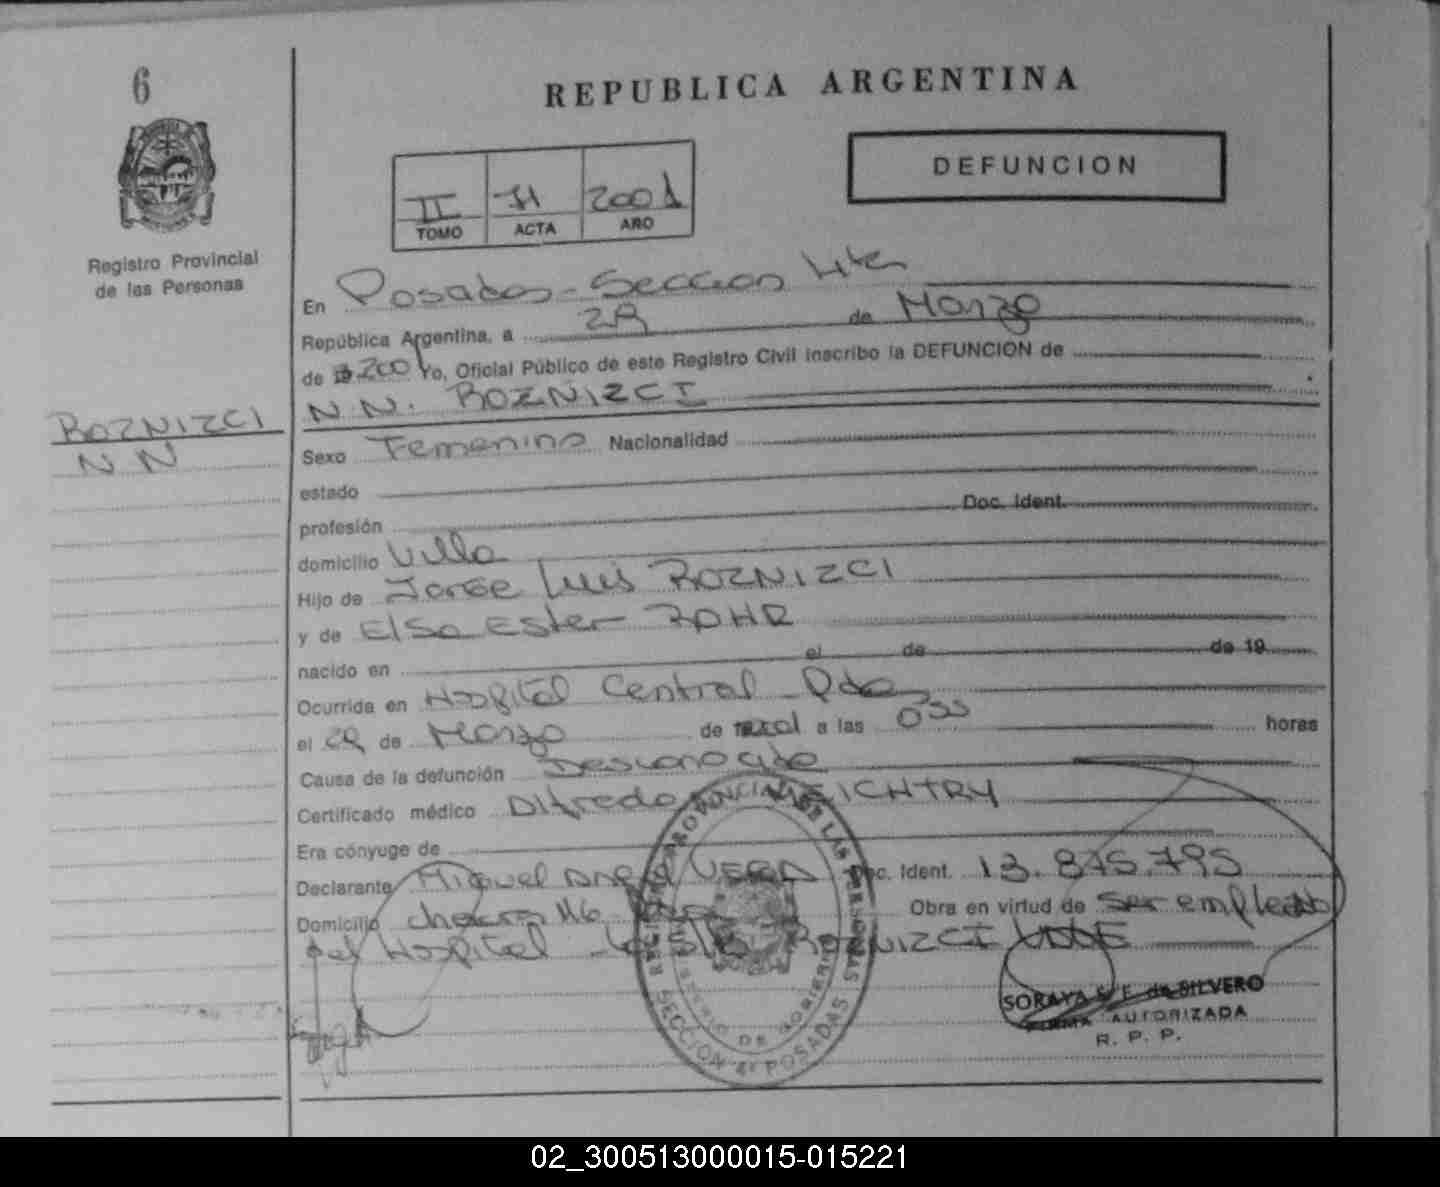 6
REPUBLICA ARGENTINA
DEFUNCION
II 71 2001
TOMO ACTA AÑO
Registro Provincial
de las Personas
En Posadas - Seccion 4ta
República Argentina, a 29 de Marzo
de 2001 Yo, Oficial Público de este Registro Civil inscribo la DEFUNCION de
N.N. ROZNIZCI
ROZNIZCI
N N
Sexo Femenino Nacionalidad
estado
profesión Doc. Ident.
domicilio Villa
Hijo de Jorge Luis ROZNIZCI
y de Elsa Ester
nacido en el de de 19
Ocurrida en Hospital Central - Pdas
el 29 de Marzo de 2001 a las 0:55 horas
Causa de la defunción Desconocida
Certificado médico Alfredo
Era cónyuge de
Declarante Miguel Angel VERA Doc. Ident. 13.875.795
Domicilio chacra 146 Obra en virtud de ser empleado
del Hospital - ROZNIZCI VALE
REGISTRO PROVINCIAL DE LAS PERSONAS
MINISTERIO DE GOBIERNO
SECCION 4ª POSADAS
SORAYA E. de SILVERO
FIRMA AUTORIZADA
R. P. P.
02_300513000015-015221